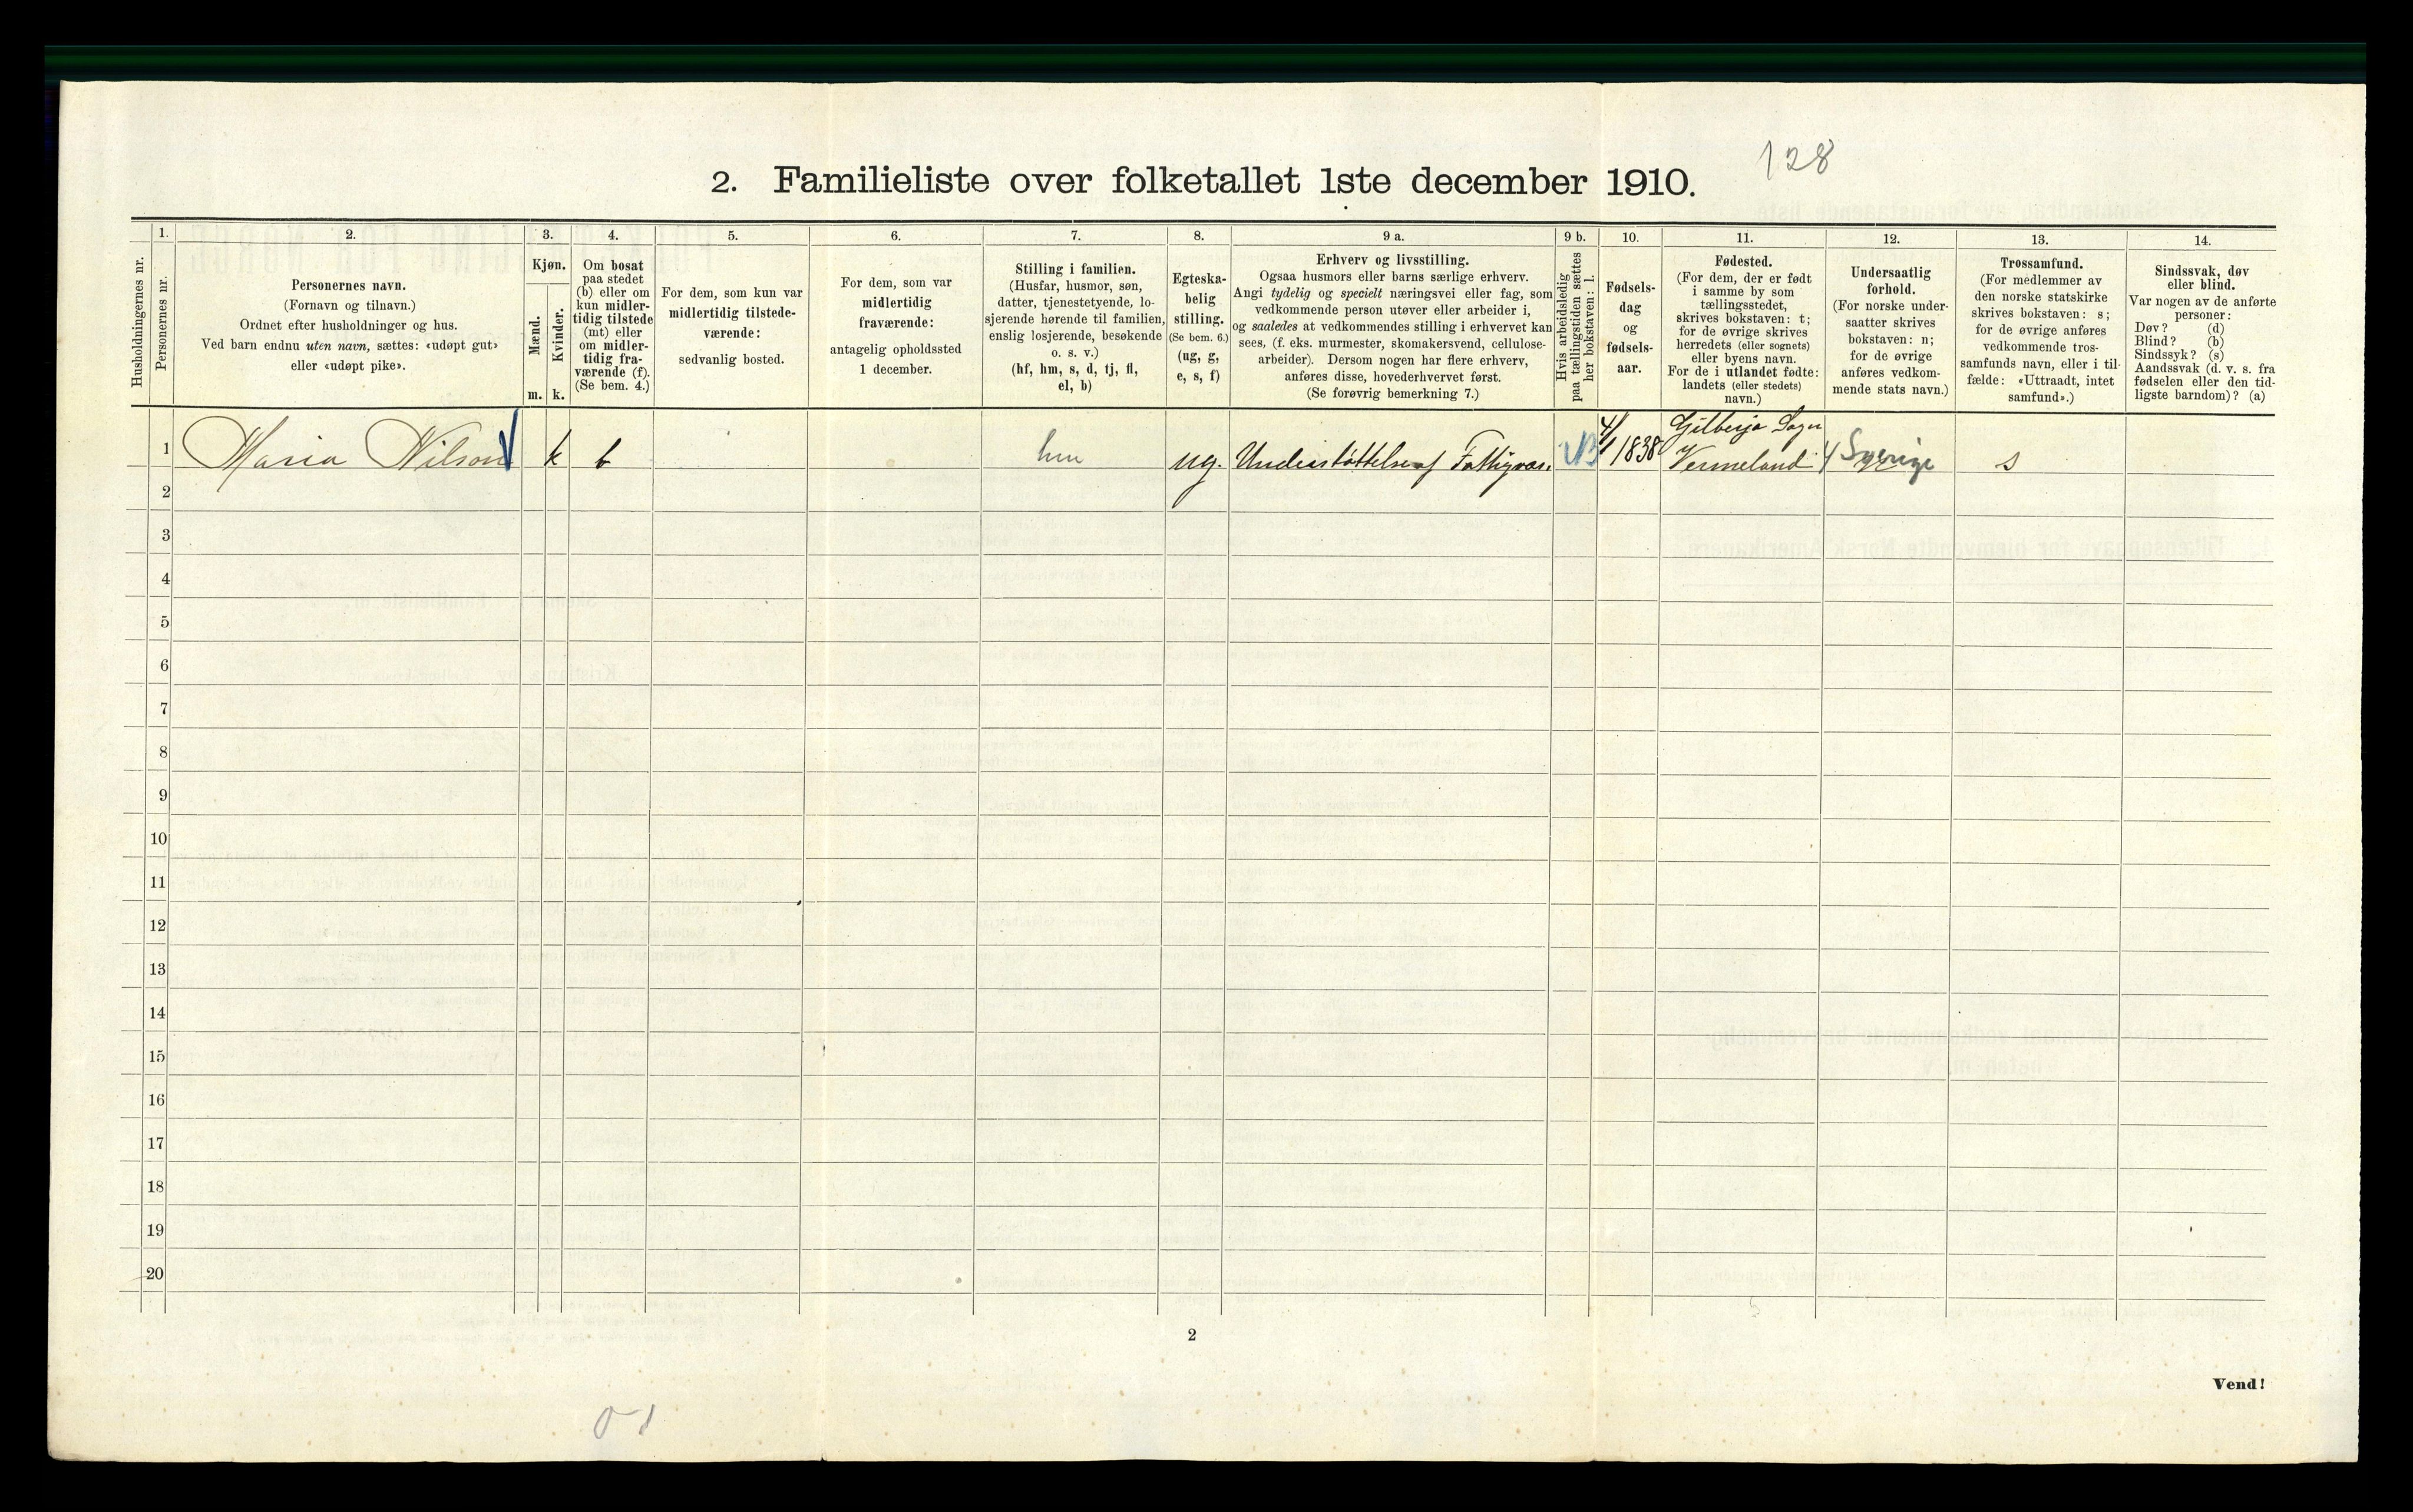 128
2. Familieliste over folketallet 1ste december 1910.
Husholdningernes nr.
1.
Personernes nr.
2.
Personernes navn.
(Fornavn og tilnavn.)
Ordnet efter husholdninger og hus.
Ved barn endnu uten navn, sættes: «udøpt gut»
eller «udøpt pike».
3.
Kjøn.
Mænd.
Kvinder.
m.
k.
4.
Om bosat
paa stedet
(b) eller om
kun midler-
tidig tilstede
(mt) eller
om midler-
tidig fra-
værende (f).
(Se bem. 4.)
5.
For dem, som kun var
midlertidig tilstede-
værende:
sedvanlig bosted.
6.
For dem, som var
midlertidig
fraværende:
antagelig opholdssted
1 december.
7.
Stilling i familien.
(Husfar, husmor, søn,
datter, tjenestetyende, lo-
sjerende hørende til familien,
enslig losjerende, besøkende
o. s. v.)
(hf, hm, s, d, tj, fl,
el, b)
8.
Egteska-
belig
stilling.
(Se bem. 6.)
(ug, g,
e, s, f)
9 a.
Erhverv og livsstilling.
Ogsaa husmors eller barns særlige erhverv.
Angi tydelig og specielt næringsvei eller fag, som
vedkommende person utøver eller arbeider i,
og saaledes at vedkommendes stilling i erhvervet kan
sees, (f. eks. murmester, skomakersvend, cellulose-
arbeider). Dersom nogen har flere erhverv,
anføres disse, hovederhvervet først.
(Se forøvrig bemerkning 7.)
9 b.
Hvis arbeidsledig
paa tællingstiden sættes
her bokstaven: l.
10.
Fødsels-
dag
og
fødsels-
aar.
11.
Fødested.
(For dem, der er født
i samme by som
tællingsstedet,
skrives bokstaven: t;
for de øvrige skrives
herredets (eller sognets)
eller byens navn.
For de i utlandet fødte:
landets (eller stedets)
navn.)
12.
Undersaatlig
forhold.
(For norske under-
saatter skrives
bokstaven: n;
for de øvrige
anføres vedkom-
mende stats navn.)
13.
Trossamfund.
(For medlemmer av
den norske statskirke
skrives bokstaven: s;
for de øvrige anføres
vedkommende tros-
samfunds navn, eller i til-
fælde: «Uttraadt, intet
samfund».)
14.
Sindssvak, døv
eller blind.
Var nogen av de anførte
personer:
Døv? (d)
Blind? (b)
Sindssyk? (s)
Aandssvak (d. v. s. fra
fødselen eller den tid-
ligste barndom)? (a)
1 Maria Nilson k b hm ug. Understøttelse af Fattigvæs. 4/1 1838 Gilberja Sogn
Vermeland Sverige s
2
3
4
5
6
7
8
9
10
11
12
13
14
15
16
17
18
19
20
2
Vend!
0-1